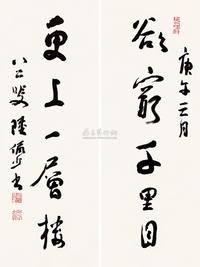 庚午三月
欲窮千里目
更上一層樓
八八叟陸儼少書